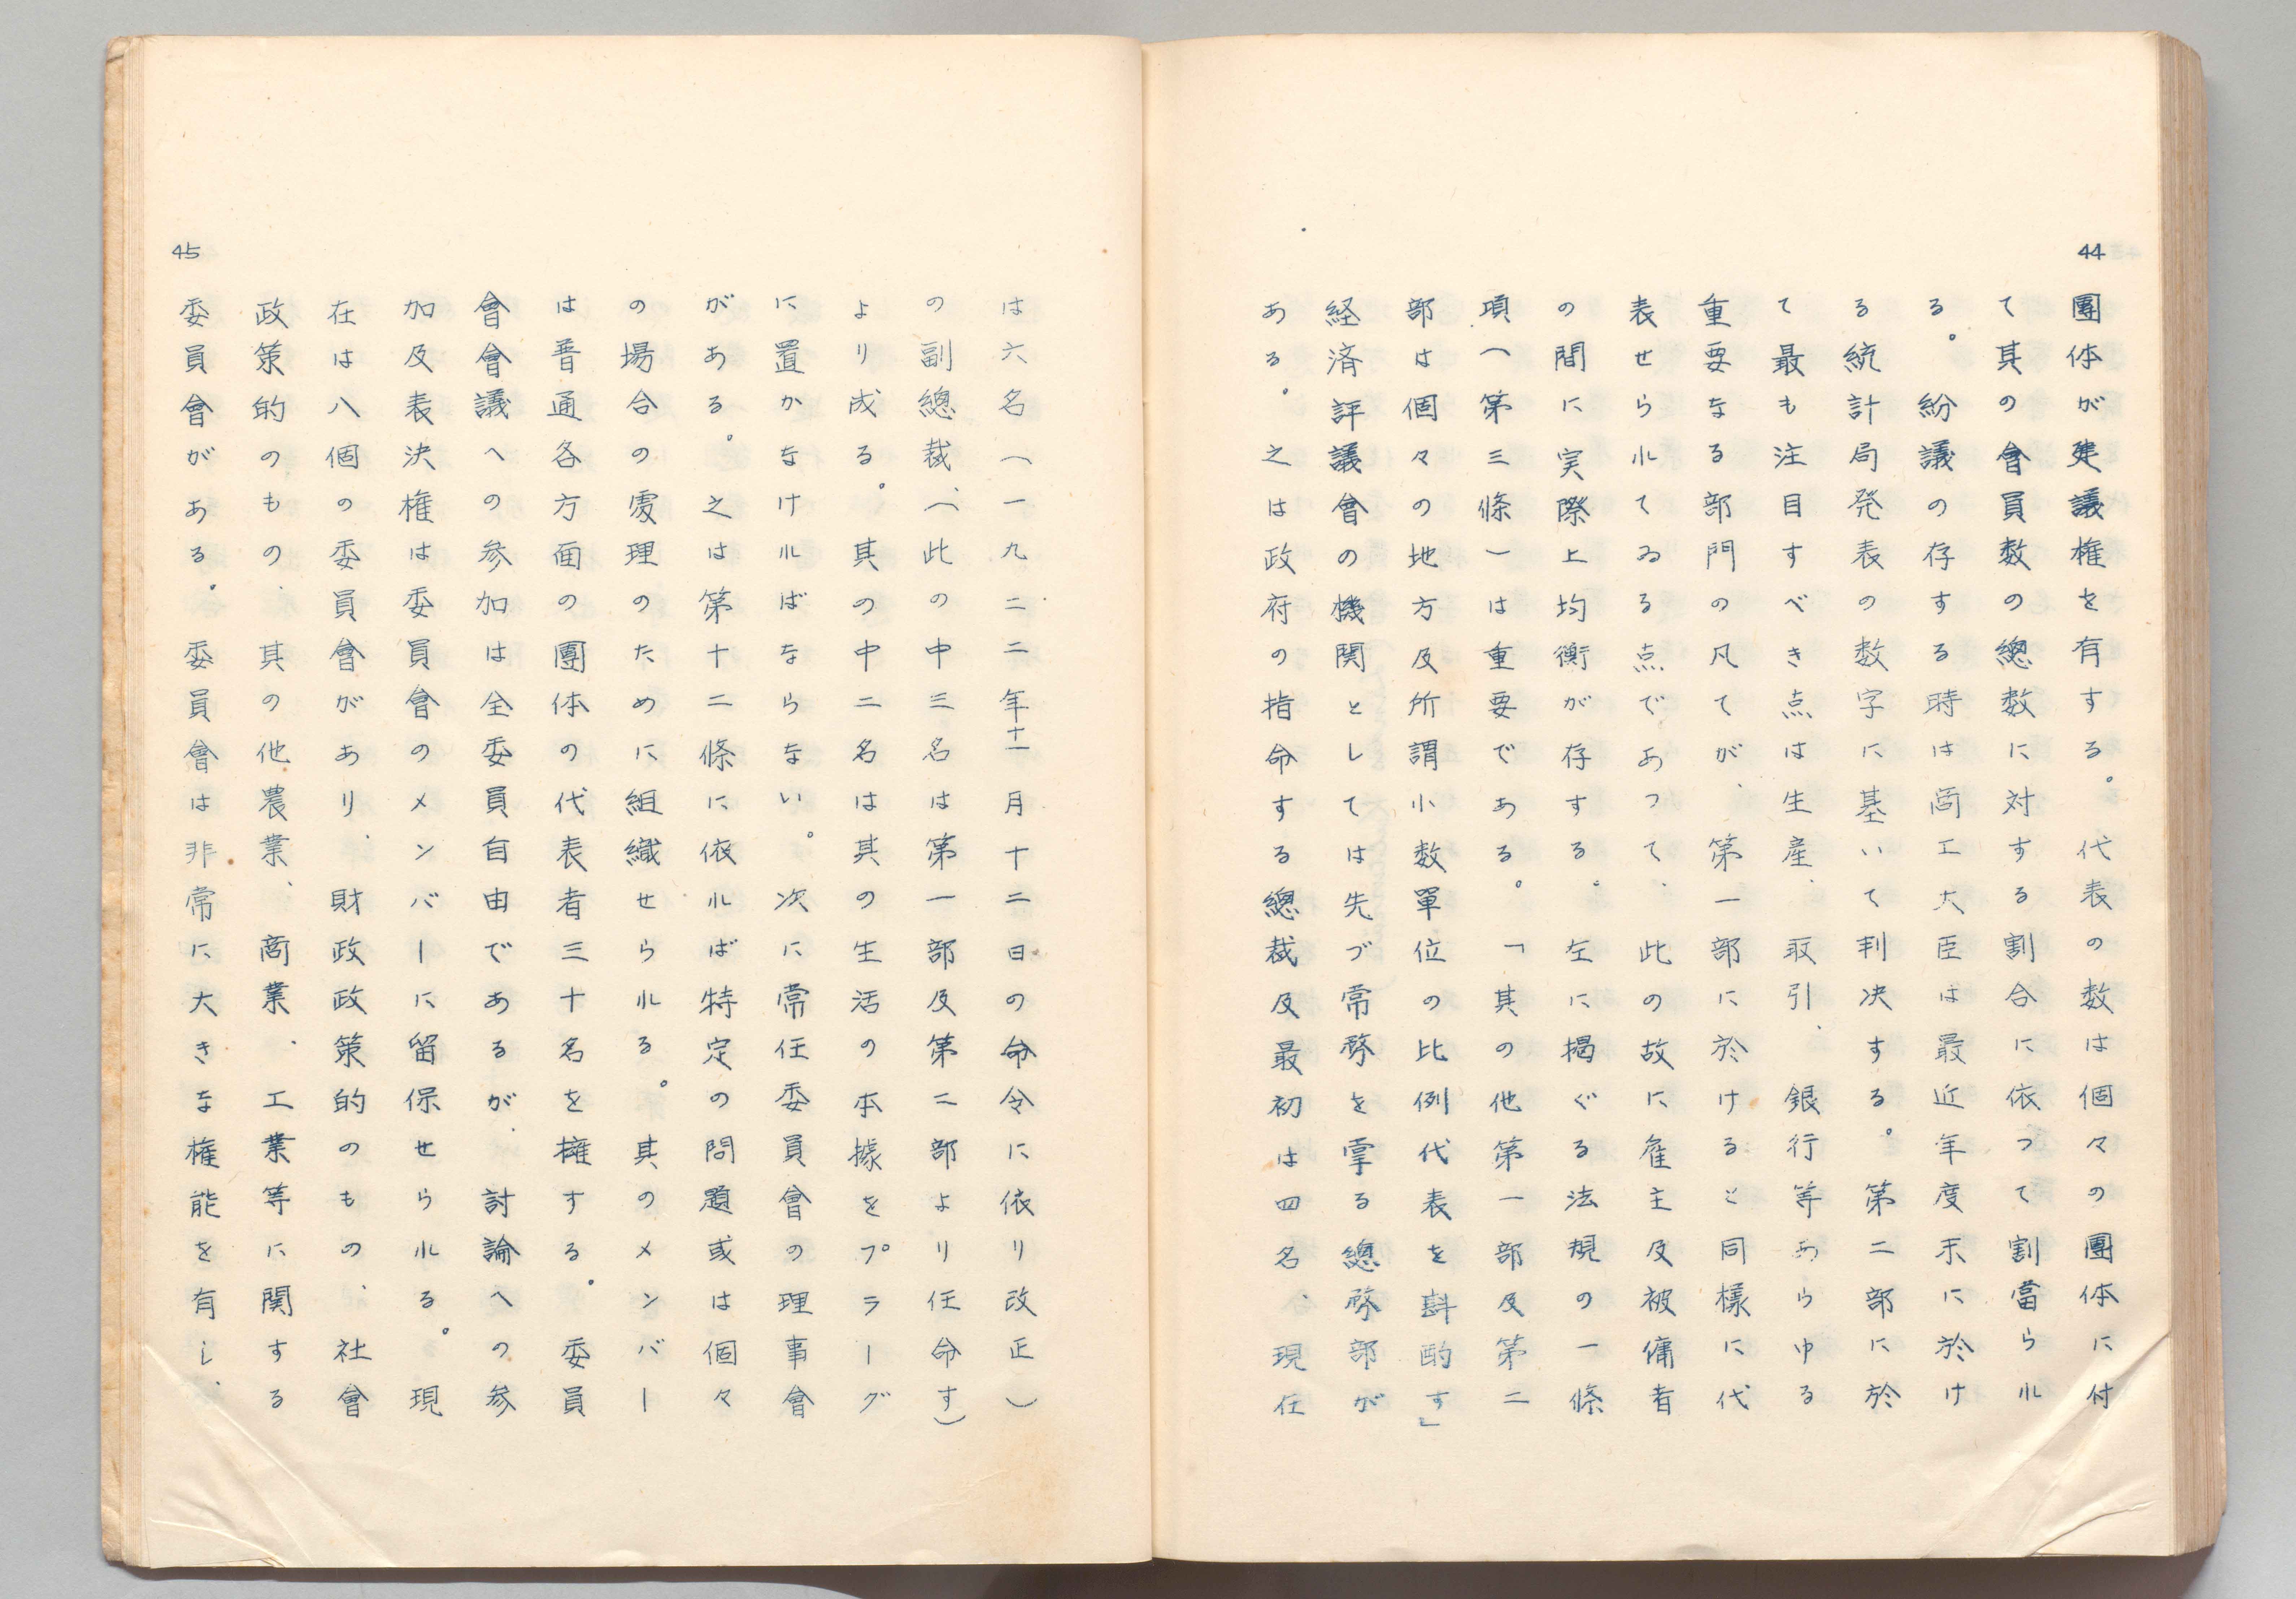 44
團体が建議権を有する。代表の数は個々の團体に付
て其の會員数の總数に対する割合に依つて割當られ
る。紛議の存する時は商工大臣は最近年度末に於け
る統計局発表の数字に基いて判決する。第二部に於
て最も注目すべき点は生産、取引、銀行等あらゆる
重要なる部門の凡てが、第一部に於けると同様に代
表せられてゐる点であつて、此の故に雇主及被傭者
の間に実際上均衡が存する。左に掲ぐる法規の一條
項（第三條）は重要である。「其の他第一部及第二
部は個々の地方及所謂小数單位の比例代表を斟酌す」
経済評議會の機関としては先づ常務を掌る總務部が
ある。之は政府の指命する總裁及最初は四名、現在
は六名（一九二二年十一月十二日の命令に依り改正）
の副總裁、（此の中三名は第一部及第二部より任命す）
より成る。其の中二名は其の生活の本據をプラーグ
に置かなければならない。次に常任委員會の理事會
がある。之は第十二條に依れば特定の問題或は個々
の場合の處理のために組織せられる。其のメンバー
は普通各方面の團体の代表者三十名を擁する。委員
會會議への参加は全委員自由であるが、討論への参
加及表決権は委員會のメンバーに留保せられる。現
在は八個の委員會があり、財政政策的のもの、社會
政策的のもの、其の他農業、商業、工業等に関する
委員會がある。委員會は非常に大きな権能を有し、
45